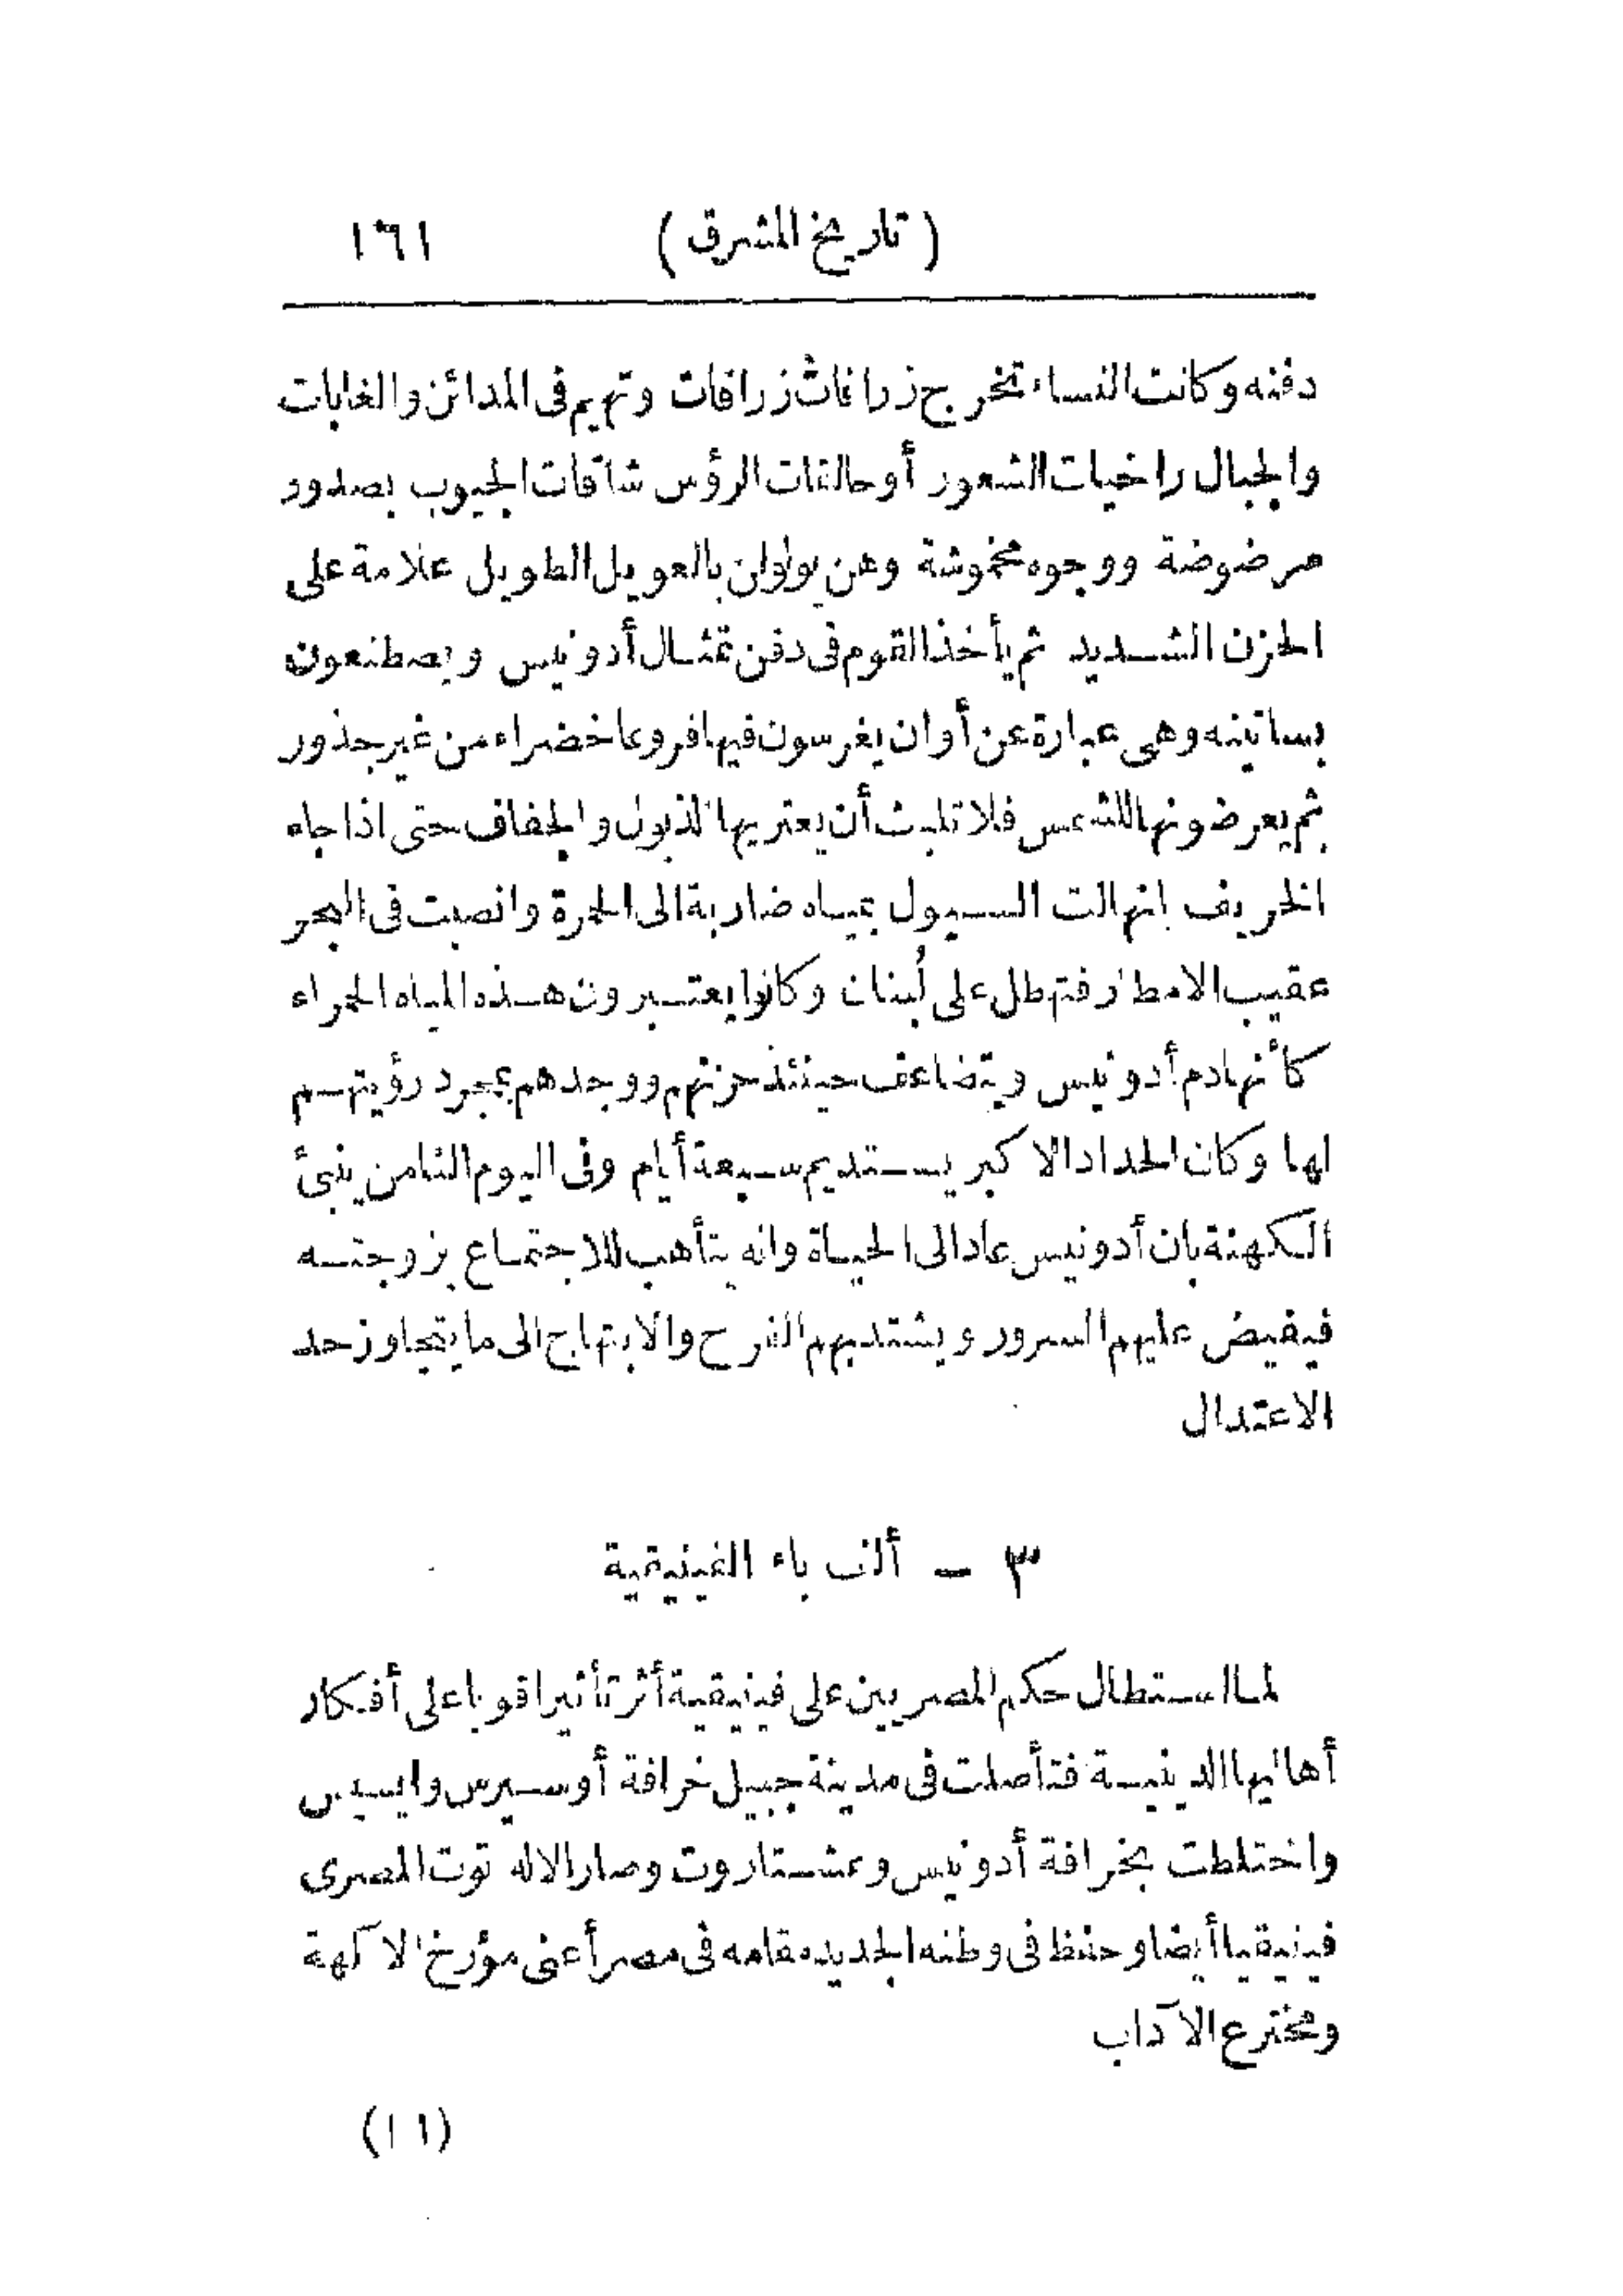 ( تاريخ المشرق ) ١٦١
دفنه وكانت النساء تخرج زرافات زرافات وتهيم فى المدائن والغابات
والجبال راخيات الشعور أو حالقات الرؤس شاقات الجيوب بصدور
مرضوضة ووجوه مخموشة وهن يولولن بالعويل الطويل علامة على
الحزن الشديد ثم يأخذ القوم فى دفن تمثال أدونيس ويصطنعون
بساتينه وهى عبارة عن أوان يغرسون فيها فروعا خضراء من غير جذور
ثم يعرضونها للشمس فلا تلبث أن يعتريها الذبول والجفاف حتى اذا جاء
الخريف انهالت السيول بمياه ضاربة الى الحمرة وانصبت فى البحر
عقيب الامطار فتهطل على لُبنان وكانوا يعتبرون هذه المياه الحمراء
كأنها دم أدونيس ويتضاعف حينئذ حزنهم ووجدهم بمجرد رؤيتهم
لها وكان الحداد الاكبر يستديم سبعة أيام وفى اليوم الثامن ينبئ
الكهنة بان أدونيس عاد الى الحياة وانه يتأهب للاجتماع بزوجته
فيفيض عليهم السرور ويشتد بهم الفرح والابتهاج الى ما يتجاوز حد
الاعتدال
٣ – ألف باء الفينيقية
لما استطال حكم المصريين على فينيقية أثر تأثيرا قويا على أفكار
أهاليها الدينية فتأصلت فى مدينة جبيل خرافة أوسيرس وايسيس
واختلطت بخرافة أدونيس وعشتاروت وصار الاله توت المصرى
فينيقيا أيضا وحفظ فى وطنه الجديد مقامه فى مصر أعنى مؤرخ الآلهة
ومخترع الآداب
(١١)